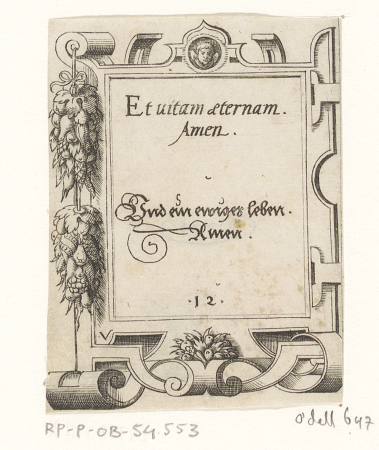 Et vitam æternam.
Amen.
Vnd ein ewiges leben.
Amen.
·12·
V
RP-P-OB-54.553
o'dell 647